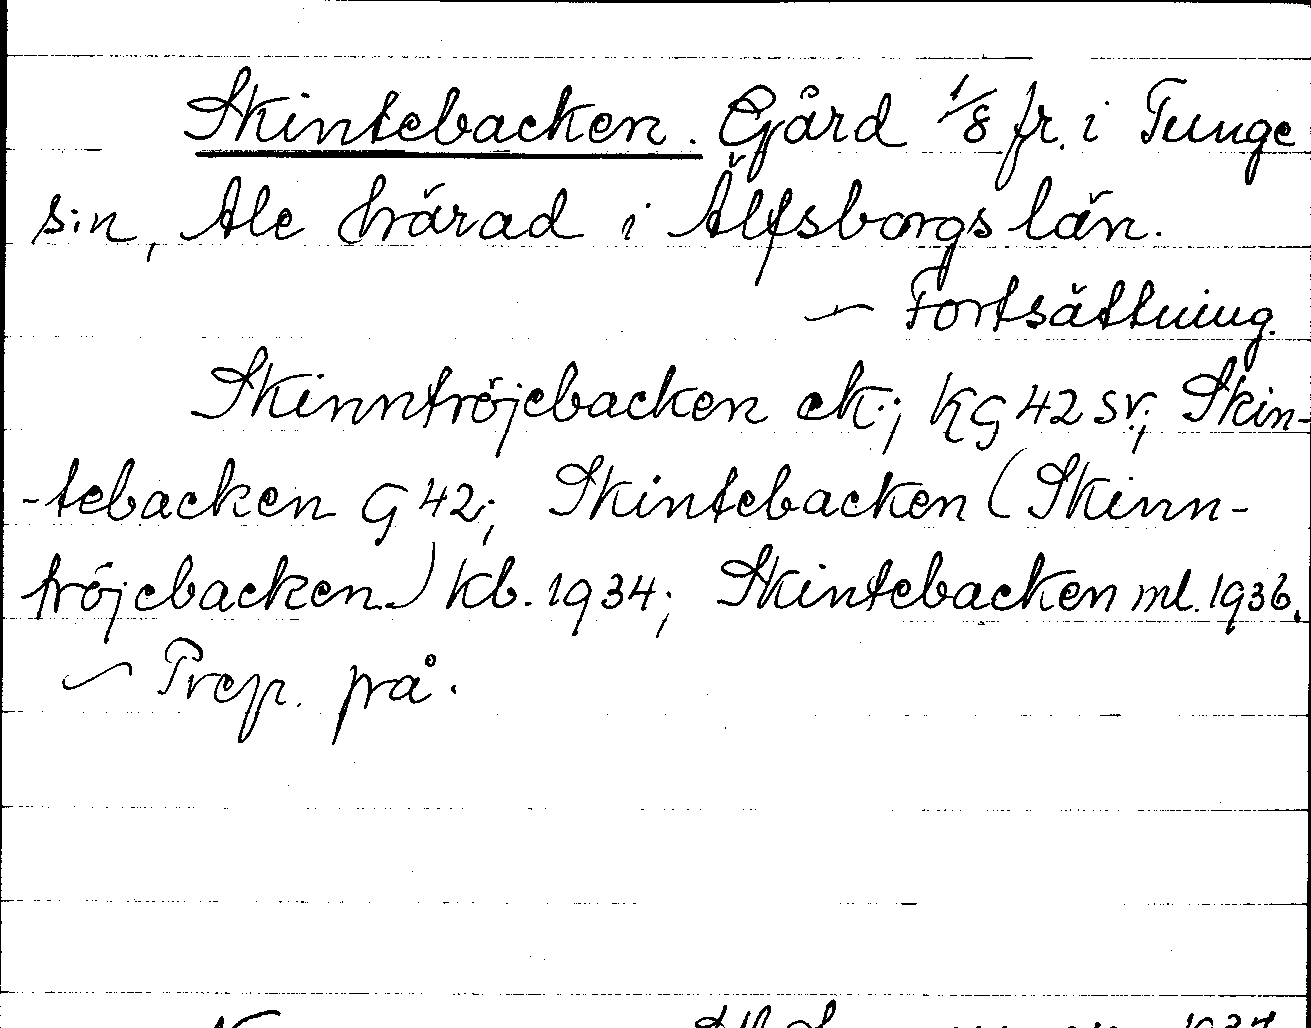 Skintebacken. Gård 1/8 fr. i Tunge
s:n, Ale härad i Älfsborgs län.
~ Fortsättning.
Skinntröjebacken ek.; KG 42 sv.; Skin-
-tebacken G 42; Skintebacken (Skinn-
tröjebacken) kb. 1934; Skintebacken ml. 1936.
~ Prep. på.
1937